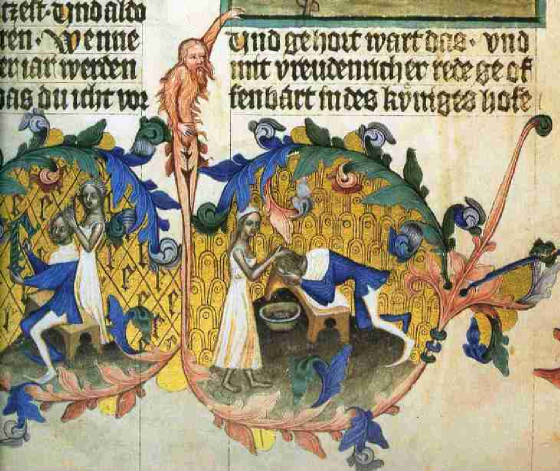 tzelt· Vnd aldo
ren· Wenne
iar werden
das du icht vor
Vnd gehort wart das· vnd
mit vreudenricher rede ge of
fenbart in des kuniges hofe